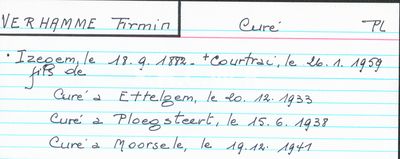 VERHAMME Firmin Curé PL
• Izegem, le 18.9.1882. + Courtrai, le 26.1.1959
fils de
Curé à Ettelgem, le 20.12.1933
Curé à Ploegsteert, le 15.6.1938
Curé à Moorsele, le 19.12.1941